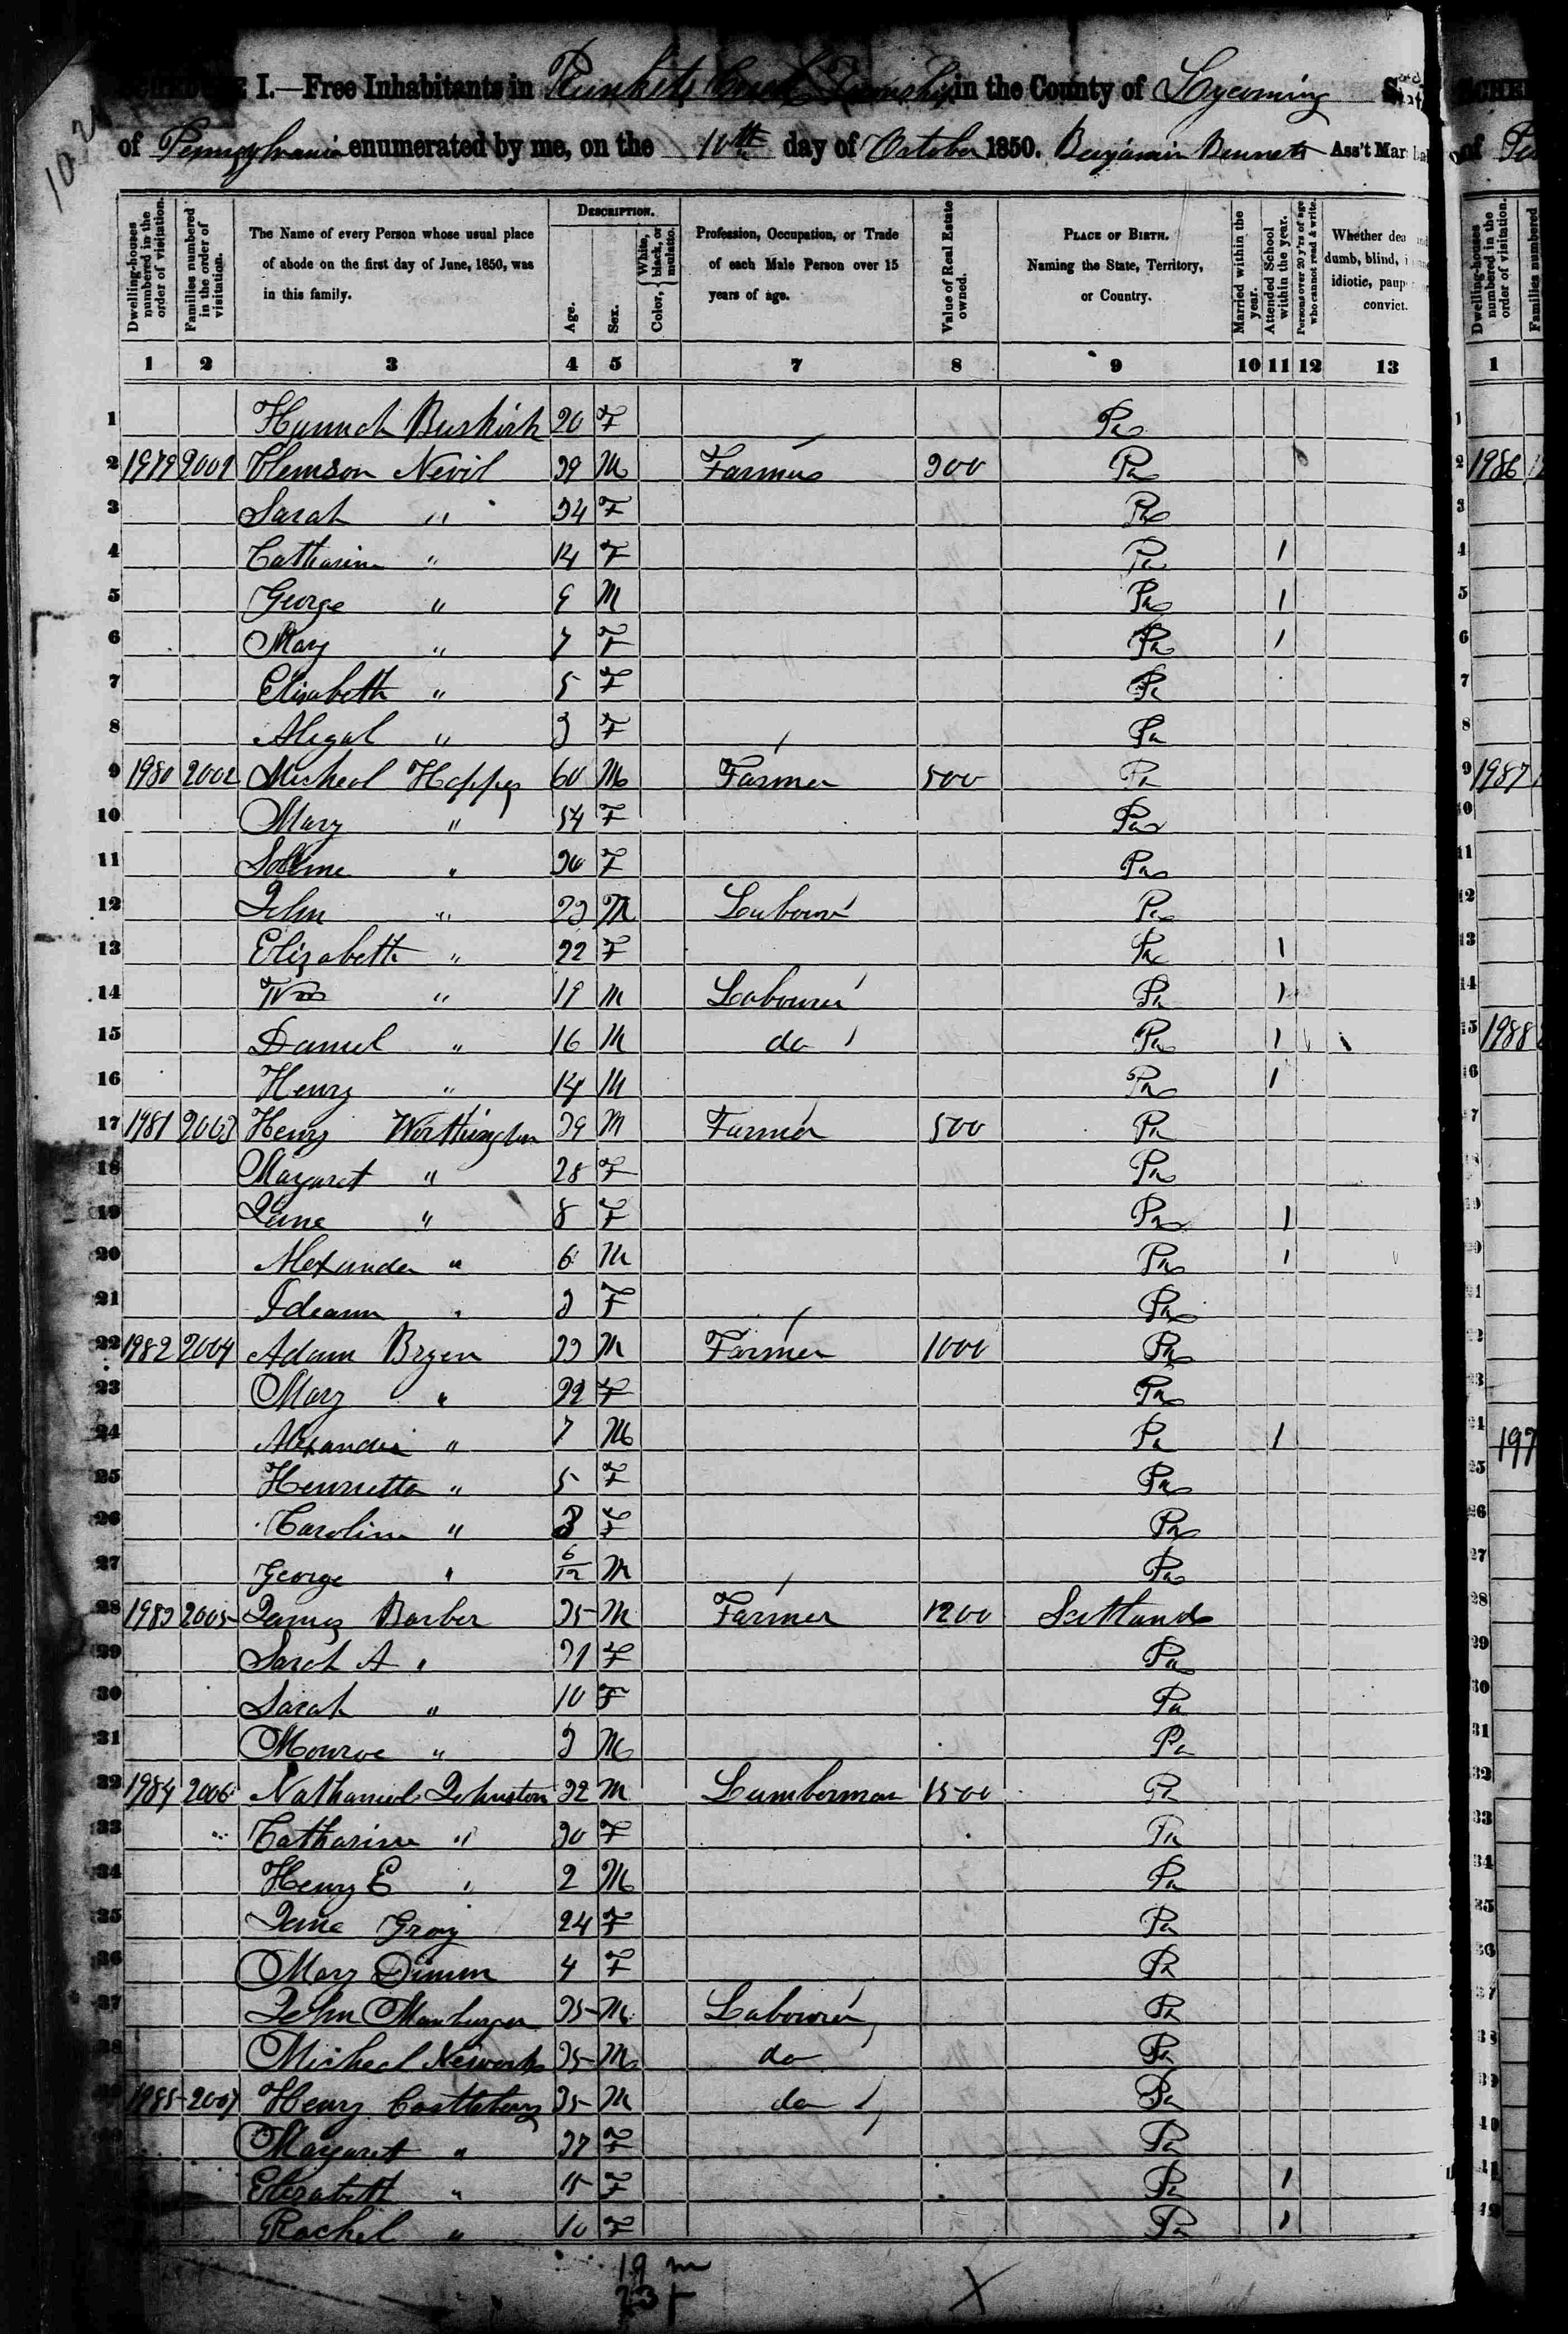 SCHEDULE I.—Free Inhabitants in Plunkets Creek Township in the County of Lycoming State
of Pennsylvania enumerated by me, on the 10th day of October 1850. Benjamin Bennett Ass't Marshal
Dwelling-houses numbered in the order of visitation.
Families numbered in the order of visitation.
The Name of every Person whose usual place of abode on the first day of June, 1850, was in this family.
DESCRIPTION.
Age.
Sex.
Color, White, black, or mulatto.
Profession, Occupation, or Trade of each Male Person over 15 years of age.
Value of Real Estate owned.
PLACE OF BIRTH. Naming the State, Territory, or Country.
Married within the year.
Attended School within the year.
Persons over 20 y'rs of age who cannot read & write.
Whether deaf and dumb, blind, insane, idiotic, pauper or convict.
1 2 3 4 5 7 8 9 10 11 12 13
1 Hannah Buskirk 20 F Pa
2 1979 2001 Clemson Nevil 39 M Farmer 300 Pa
3 Sarah " 34 F Pa
4 Catharine " 14 F Pa 1
5 George " 9 M Pa 1
6 Mary " 7 F Pa 1
7 Elisabeth " 5 F Pa
8 Abigal " 3 F Pa
9 1980 2002 Micheal Hoppes 60 M Farmer 500 Pa
10 Mary " 54 F Pa
11 " 30 F Pa
12 John " 23 M Labourer Pa
13 Elizabeth " 22 F Pa 1
14 Wm " 19 M Labourer Pa 1
15 Daniel " 16 M do Pa 1
16 Henry " 14 M Pa 1
17 1981 2003 Henry Worthington 39 M Farmer 500 Pa
18 Margaret " 28 F Pa
19 Jane " 8 F Pa 1
20 Alexander " 6 M Pa 1
21 Ideann " 3 F Pa
22 1982 2004 Adam Bryen 33 M Farmer 1000 Pa
23 Mary " 32 F Pa
24 Alexander " 7 M Pa 1
25 Henrietta " 5 F Pa
26 Caroline " 3 F Pa
27 George " 6/12 M Pa
28 1983 2005 James Barber 35 M Farmer 1200 Scotland
29 Sarah A " 31 F Pa
30 Sarah " 10 F Pa
31 Monroe " 3 M Pa
32 1984 2006 Nathaniel Johnston 32 M Lumberman 1500 Pa
33 Catharine " 30 F Pa
34 Henry E " 2 M Pa
35 Jane Gray 24 F Pa
36 Mary Dimm 4 F Pa
37 John 35 M Labourer Pa
38 Micheal 35 M do Pa
39 1985 2007 Henry 35 M do Pa
40 Margaret " 37 F Pa
41 Elizabeth " 15 F Pa 1
42 Rachel " 10 F Pa 1
19 m
23 f
X
1986
1987
1988
197